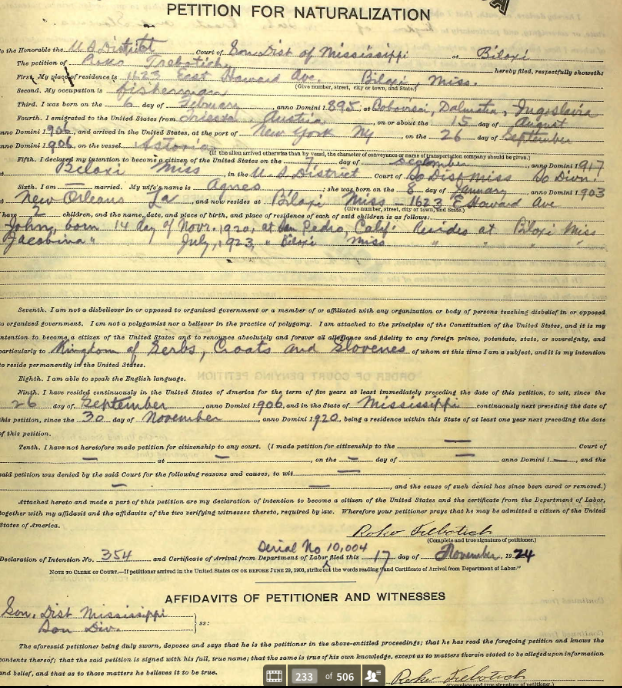 PETITION FOR NATURALIZATION
To the Honorable the U.S District Court of Son Dist of Mississippi at Biloxi
The petition of Roko Trebotich, hereby filed, respectfully showeth:
First. My place of residence is 1623 East Howard Ave. Biloxi, Miss.
(Give number, street, city or town, and State.)
Second. My occupation is fisherman
Third. I was born on the 6 day of February, anno Domini 1895, at Dalmatia, Jugoslavia
Fourth. I emigrated to the United States from Austria on or about the 15 day of August
anno Domini 1906, and arrived in the United States, at the port of New York Ny, on the 26 day of September
anno Domini 1906, on the vessel
(If the alien arrived otherwise than by vessel, the character of conveyance or name of transportation company should be given.)
Fifth. I declared my intention to become a citizen of the United States on the 7 day of anno Domini 1917
at Beloxi Miss, in the U.S District Court of So Dist miss So Divn.
Sixth. I am — married. My wife's name is Agnes; she was born on the 8 day of January 1903
at New Orleans La and now resides at Biloxi Miss - 1623 E Howard Ave
(Give number, street, city or town, and State.)
I have children, and the name, date, and place of birth, and place of residence of each of said children is as follows:
John, born 14 day of Novr. 1920, at San Pedro, Calif Resides at Biloxi Miss
Jacobina " July, 1923, " Biloxi miss " " "
Seventh. I am not a disbeliever in or opposed to organized government or a member of or affiliated with any organization or body of persons teaching disbelief in or opposed
to organized government. I am not a polygamist nor a believer in the practice of polygamy. I am attached to the principles of the Constitution of the United States, and it is my
intention to become a citizen of the United States and to renounce absolutely and forever all allegiance and fidelity to any foreign prince, potentate, state, or sovereignty, and
particularly to Kingdom of Serbs, Croats and Slovenes of whom at this time I am a subject, and it is my intention
to reside permanently in the United States.
Eighth. I am able to speak the English language.
Ninth. I have resided continuously in the United States of America for the term of five years at least immediately preceding the date of this petition, to wit, since the
26 day of September, anno Domini 1906, and in the State of Mississippi continuously next preceding the date of
this petition, since the 30 day of November, anno Domini 1920, being a residence within this State of at least one year next preceding the date
of this petition.
Tenth. I have not heretofore made petition for citizenship to any court. (I made petition for citizenship to the — Court of
— at — on the — day of —, anno Domini 1 —, and the
said petition was denied by the said Court for the following reasons and causes, to wit —
— — and the cause of such denial has since been cured or removed.)
Attached hereto and made a part of this petition are my declaration of intention to become a citizen of the United States and the certificate from the Department of Labor,
together with my affidavit and the affidavits of the two verifying witnesses thereto, required by law. Wherefore your petitioner prays that he may be admitted a citizen of the United
States of America.
Roko Trebotich
(Complete and true signature of petitioner.)
Serial No 10,004
Declaration of Intention No. 354 and Certificate of Arrival from Department of Labor filed this 17 day of November, 1924
NOTE TO CLERK OF COURT.—If petitioner arrived in the United States ON OR BEFORE JUNE 29, 1906, strike out the words reading "and Certificate of Arrival from Department of Labor."
AFFIDAVITS OF PETITIONER AND WITNESSES
Son. Dist Mississippi
Son Div. ss:
The aforesaid petitioner being duly sworn, deposes and says that he is the petitioner in the above-entitled proceedings; that he has read the foregoing petition and knows the
contents thereof; that the said petition is signed with his full, true name; that the same is true of his own knowledge, except as to matters therein stated to be alleged upon information
and belief, and that as to those matters he believes it to be true.
Roko Trebotich
(Complete and true signature of petitioner.)
233 of 506